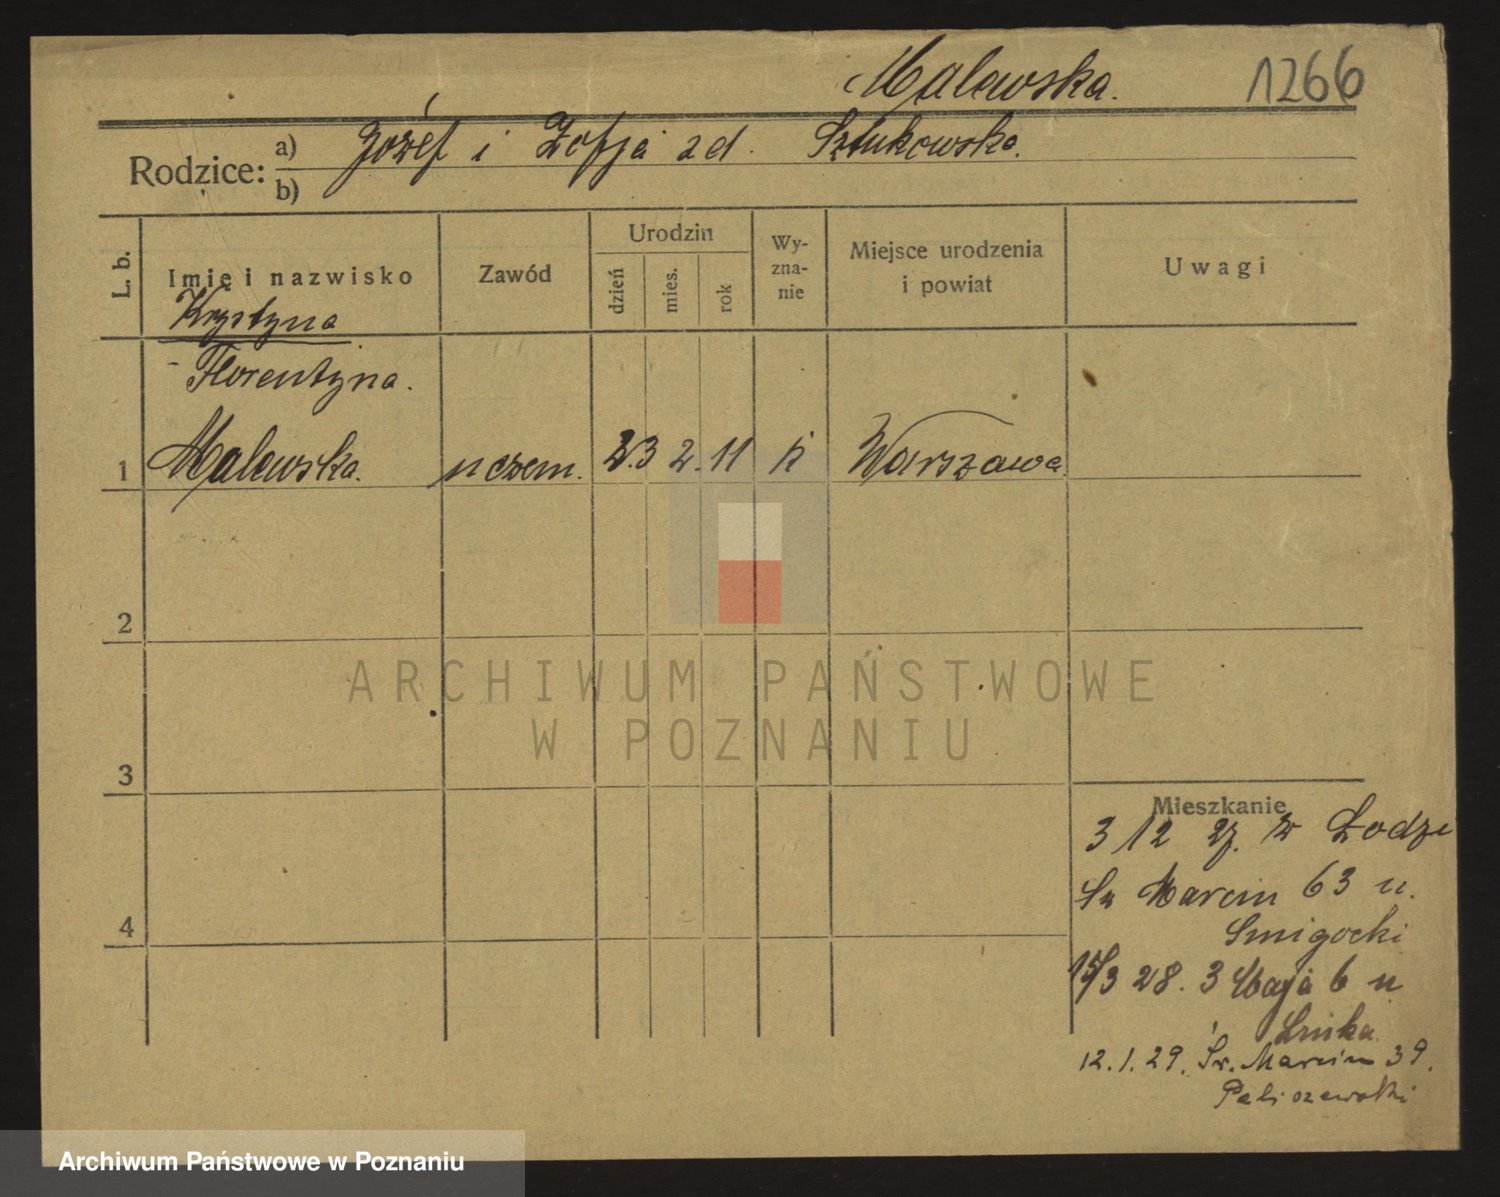 Malewska. 1266
Rodzice: a) Józef i Zofja zd. Sztukowska.
b)
L. b. Imię i nazwisko Zawód Urodzin dzień mies. rok Wy-zna-nie Miejsce urodzenia i powiat Uwagi
Krystyna
Florentyna.
1 Malewska. uczem. 23 2. 11 k Warszawa.
2
ARCHIWUM PAŃSTWOWE
W POZNANIU
3
Mieszkanie
3 12 27. z Łodzi
Św Marcin 63 u.
Smigocki
4
15/3 28. 3 Maja 6 u
12.1.29. Św. Marcin 39.
Archiwum Państwowe w Poznaniu